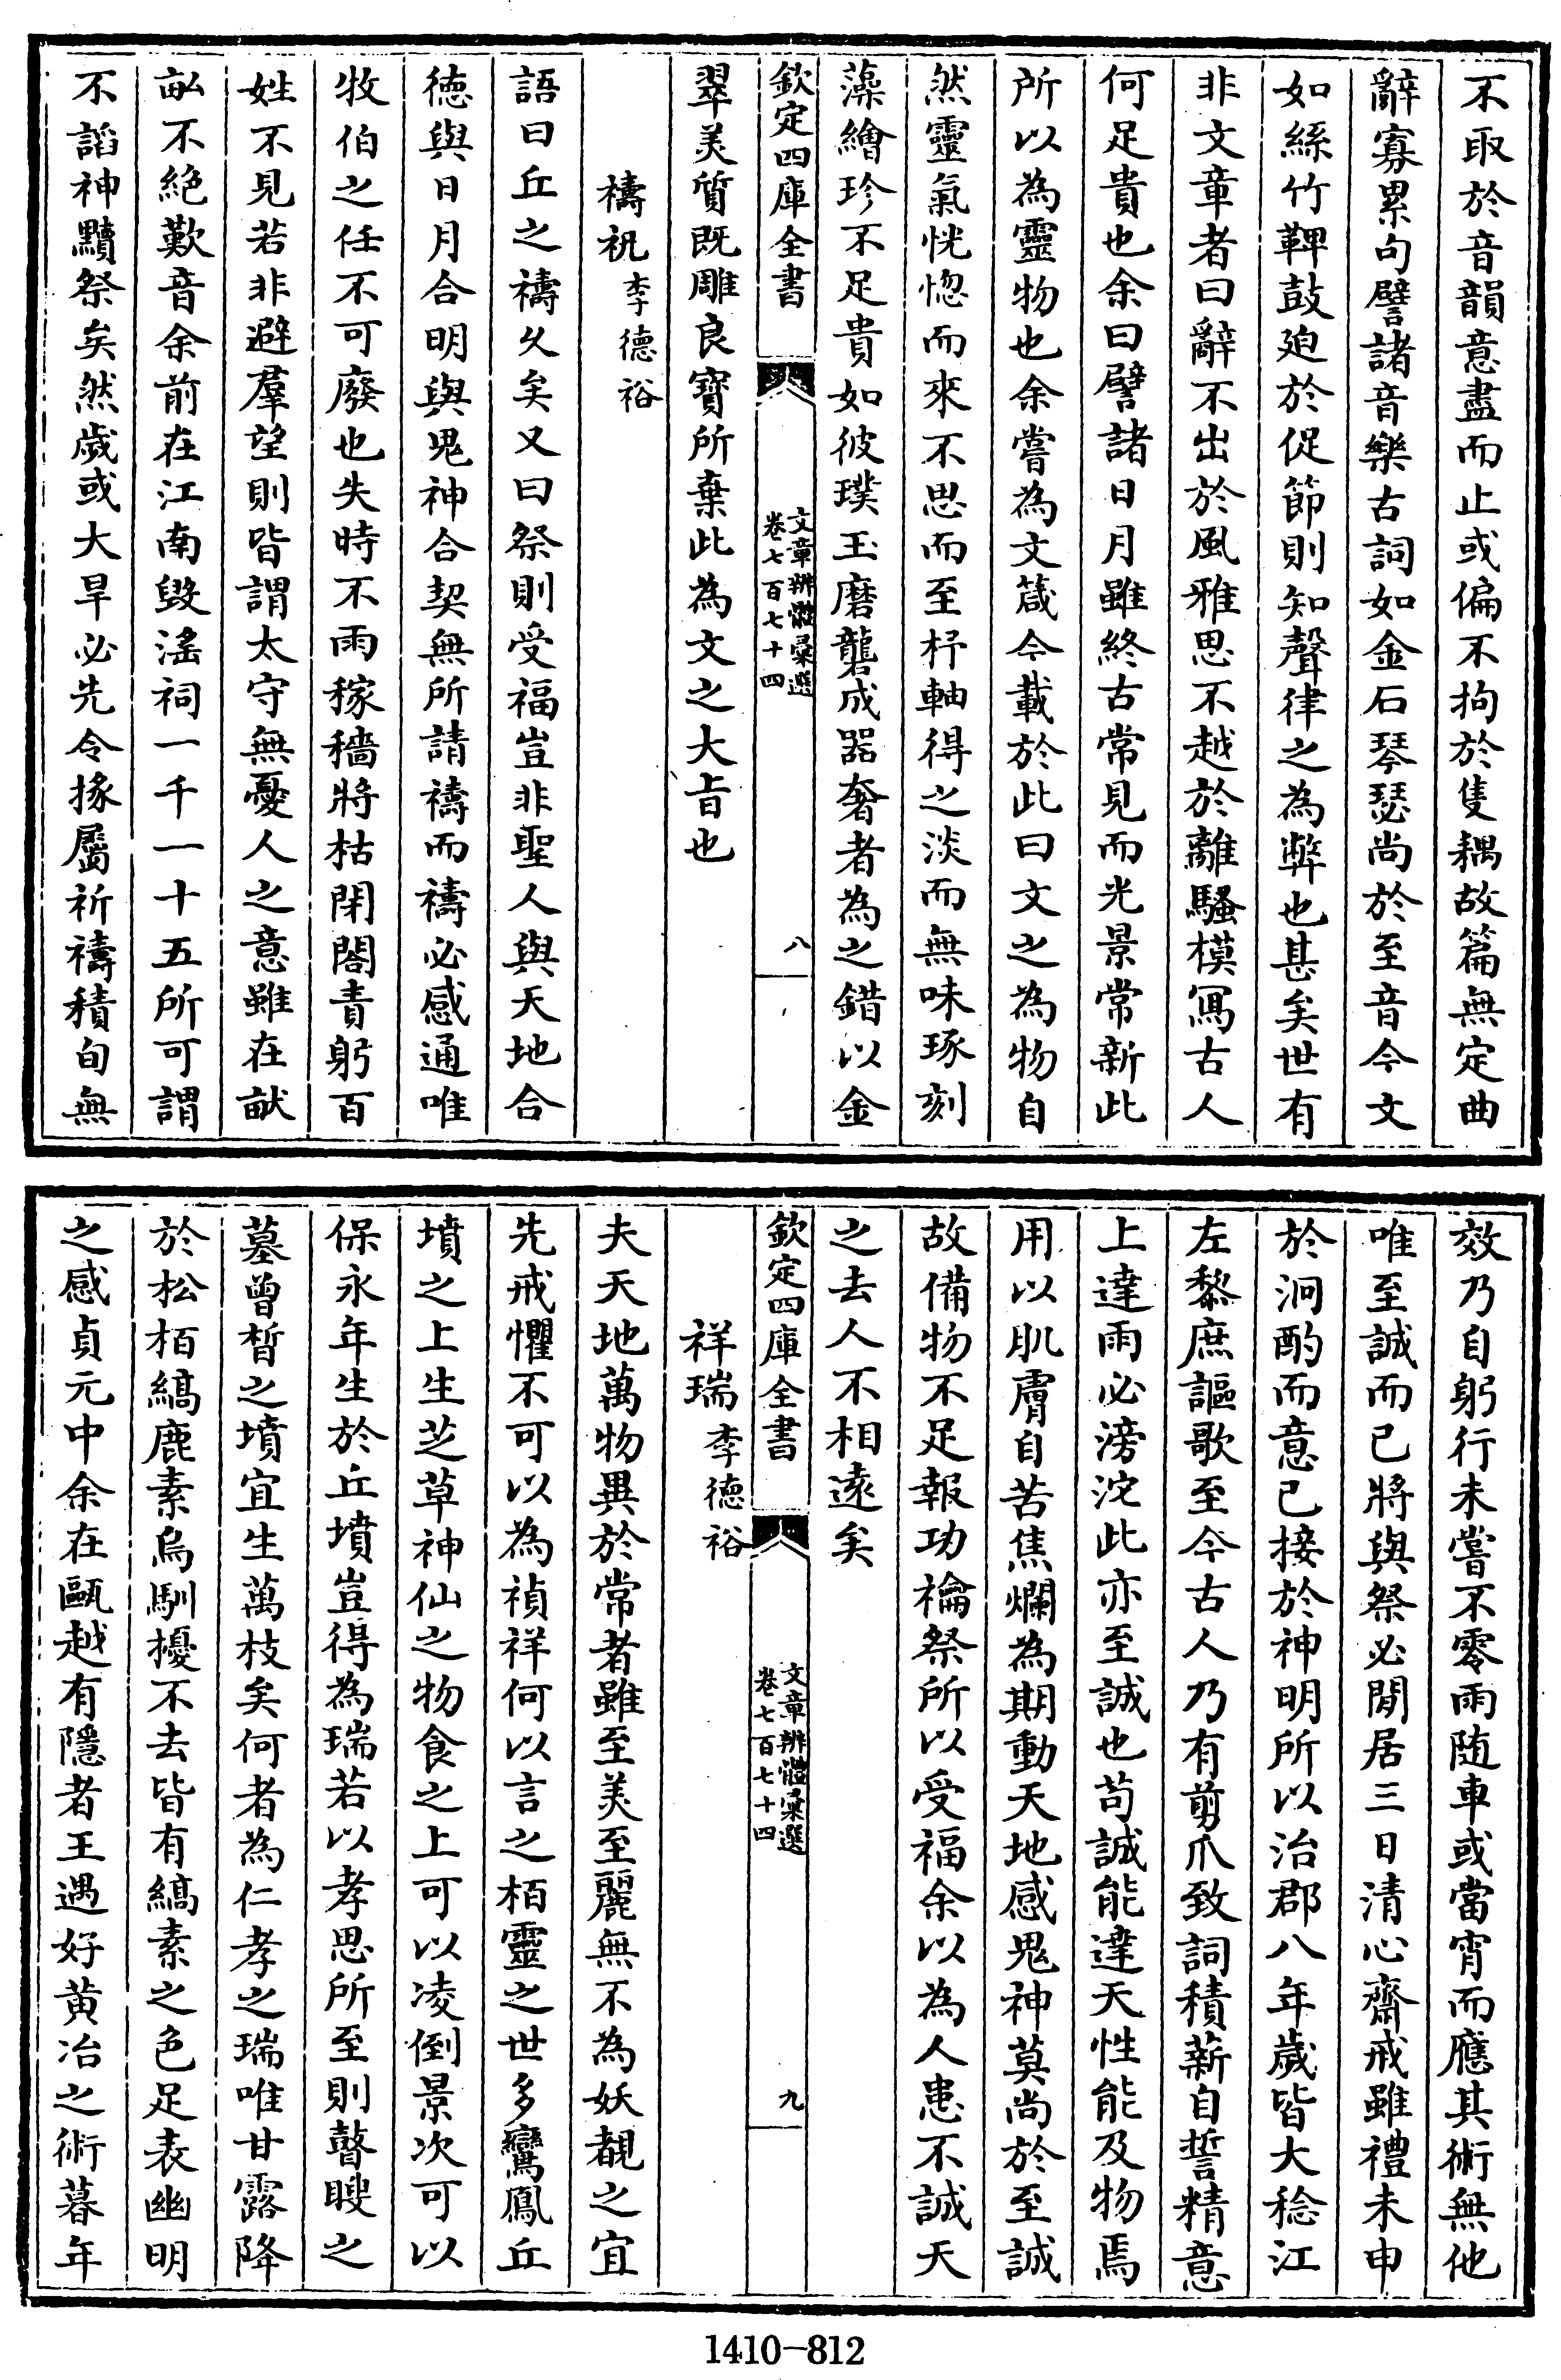 不取於音韻意盡而止或偏不拘於隻耦故篇無定曲
辭寡累句譬諸音樂古詞如金石琴瑟尚於至音今文
如絲竹鞞鼓廹於促節則知聲律之為弊也甚矣世有
非文章者曰辭不出於風雅思不越於離騷模寫古人
何足貴也余曰譬諸日月雖終古常見而光景常新此
所以為靈物也余嘗為文箴今載於此曰文之為物自
然靈氣恍惚而來不思而至杼軸得之淡而無味琢刻
藻繪珍不足貴如彼璞玉磨礱成器奢者為之錯以金
欽定四庫全書
文章辨體彚選
卷七百七十四
八
翠美質既雕良寶所棄此為文之大㫖也
禱祝李德裕
語曰丘之禱久矣又曰祭則受福豈非聖人與天地合
徳與日月合明與鬼神合契無所請禱而禱必感通唯
牧伯之任不可廢也失時不雨稼穡將枯閉閤責躬百
姓不見若非避羣望則皆謂太守無憂人之意雖在畎
畝不絶歎音余前在江南毀滛祠一千一十五所可謂
不謟神黷祭矣然嵗或大旱必先令掾屬祈禱積旬無
效乃自躬行未嘗不零雨随車或當宵而應其術無他
唯至誠而已將與祭必閒居三日清心齋戒雖禮未申
於泂酌而意已接於神明所以治郡八年嵗皆大稔江
左黎庶謳歌至今古人乃有剪爪致詞積薪自誓精意
上達雨必滂沱此亦至誠也苟誠能達天性能及物焉
用以肌膚自苦焦爛為期動天地感鬼神莫尚於至誠
故備物不足報功禴祭所以受福余以為人患不誠天
之去人不相遠矣
欽定四庫全書
文章辨體彚選
卷七百七十四
九
祥瑞李德裕
夫天地萬物異於常者雖至美至麗無不為妖覩之宜
先戒懼不可以為禎祥何以言之栢靈之世多鸞鳳丘
墳之上生芝草神仙之物食之上可以凌倒景次可以
保永年生於丘墳豈得為瑞若以孝思所至則瞽瞍之
墓曾晳之墳宜生萬枝矣何者為仁孝之瑞唯甘露降
於松栢縞鹿素烏馴擾不去皆有縞素之色足表幽明
之感貞元中余在甌越有隱者王遇好黄冶之術暮年
1410-812